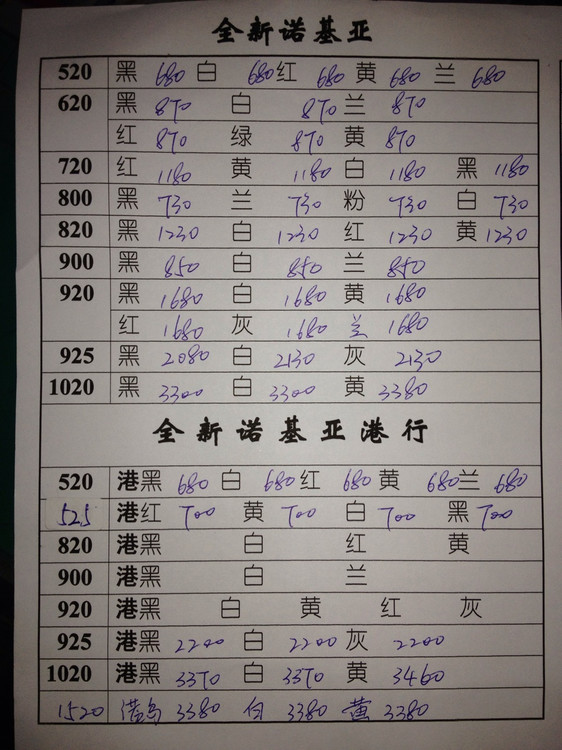 全新诺基亚
520 黑 680 白 680 红 680 黄 680 兰 680
620 黑 870 白 870 兰 870
红 870 绿 870 黄 870
720 红 1180 黄 1180 白 1180 黑 1180
800 黑 730 兰 730 粉 730 白 730
820 黑 1230 白 1230 红 1230 黄 1230
900 黑 850 白 850 兰 850
920 黑 1680 白 1680 黄 1680
红 1680 灰 1680 兰 1680
925 黑 2080 白 2130 灰 2130
1020 黑 3300 白 3300 黄 3380
全新诺基亚港行
520 港黑 680 白 680 红 680 黄 680 兰 680
525 港红 700 黄 700 白 700 黑 700
820 港黑 白 红 黄
900 港黑 白 兰
920 港黑 白 黄 红 灰
925 港黑 2200 白 2200 灰 2200
1020 港黑 3370 白 3370 黄 3460
1520 港 3380 白 3380 黄 3380